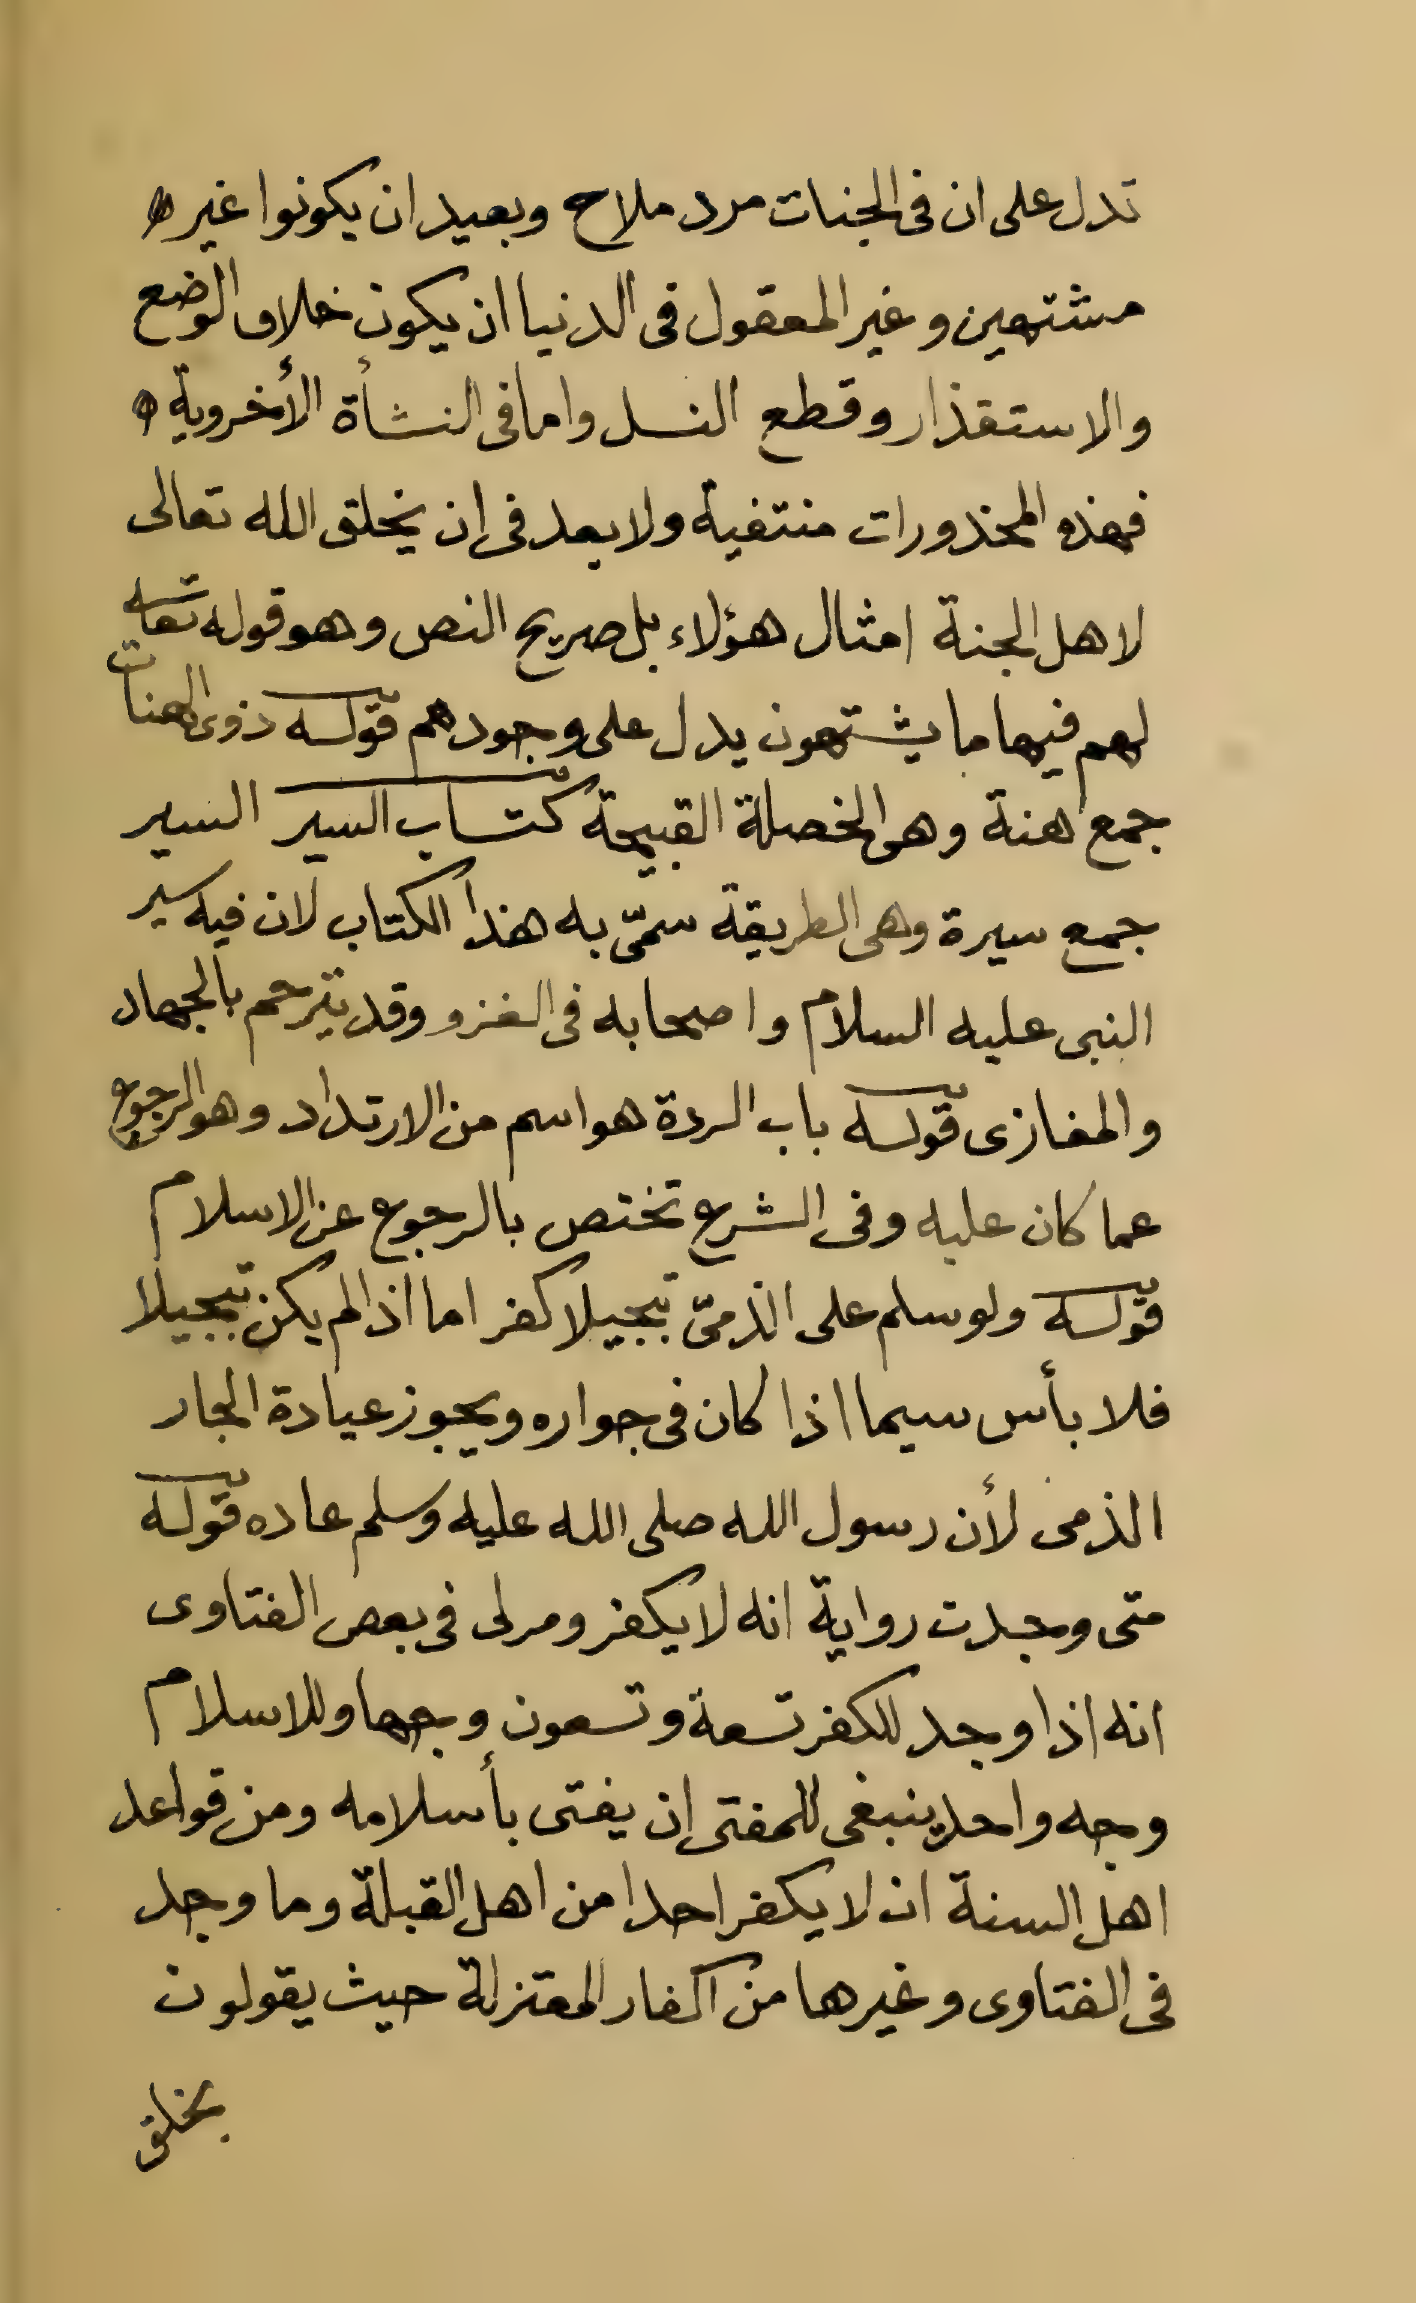 تدل على ان فى الجنات مرد ملاح وبعيد ان يكونوا غير
مشتهين وغير المعقول فى الدنيا ان يكون خلاف الوضع
والاستقذار وقطع النسل واما فى النشأة الأخروية
فهذه المخذورات منتفية ولا بعد فى ان يخلق الله تعالى
لاهل الجنة امثال هؤلاء بل صريح النص وهو قوله تعالى
لهم فيها ما يشتهون يدل على وجودهم قوله ذوى الهنات
جمع هنة وهى الخصلة القبيحة كتاب السير السير
جمع سيرة وهى الطريقة سمّى به هذا الكتاب لان فيه سير
النبى عليه السلام واصحابه فى الغزو وقد يترحم بالجهاد
والمغازى قوله باب الردة هو اسم من الارتداد وهو الرجوع
عما كان عليه وفى الشرع تختص بالرجوع عن الاسلام
قوله ولو سلم على الذمىّ تبجيلا كفر اما اذا لم يكن تبجيلا
فلا بأس سيما اذا كان فى جواره ويجوز عيادة الجار
الذمى لأن رسول الله صلى الله عليه وسلم عاده قوله
متى وجدت رواية انه لا يكفر ومرلى فى بعض الفتاوى
انه اذا وجد للكفر تسعة وتسعون وجها وللاسلام
وجه واحد ينبغى للمفتى ان يفتى بأسلامه ومن قواعد
اهل السنة ان لا يكفر احدا من اهل القبلة وما وجد
فى الفتاوى وغيرها من اكفار المعتزلة حيث يقولون
بخلق